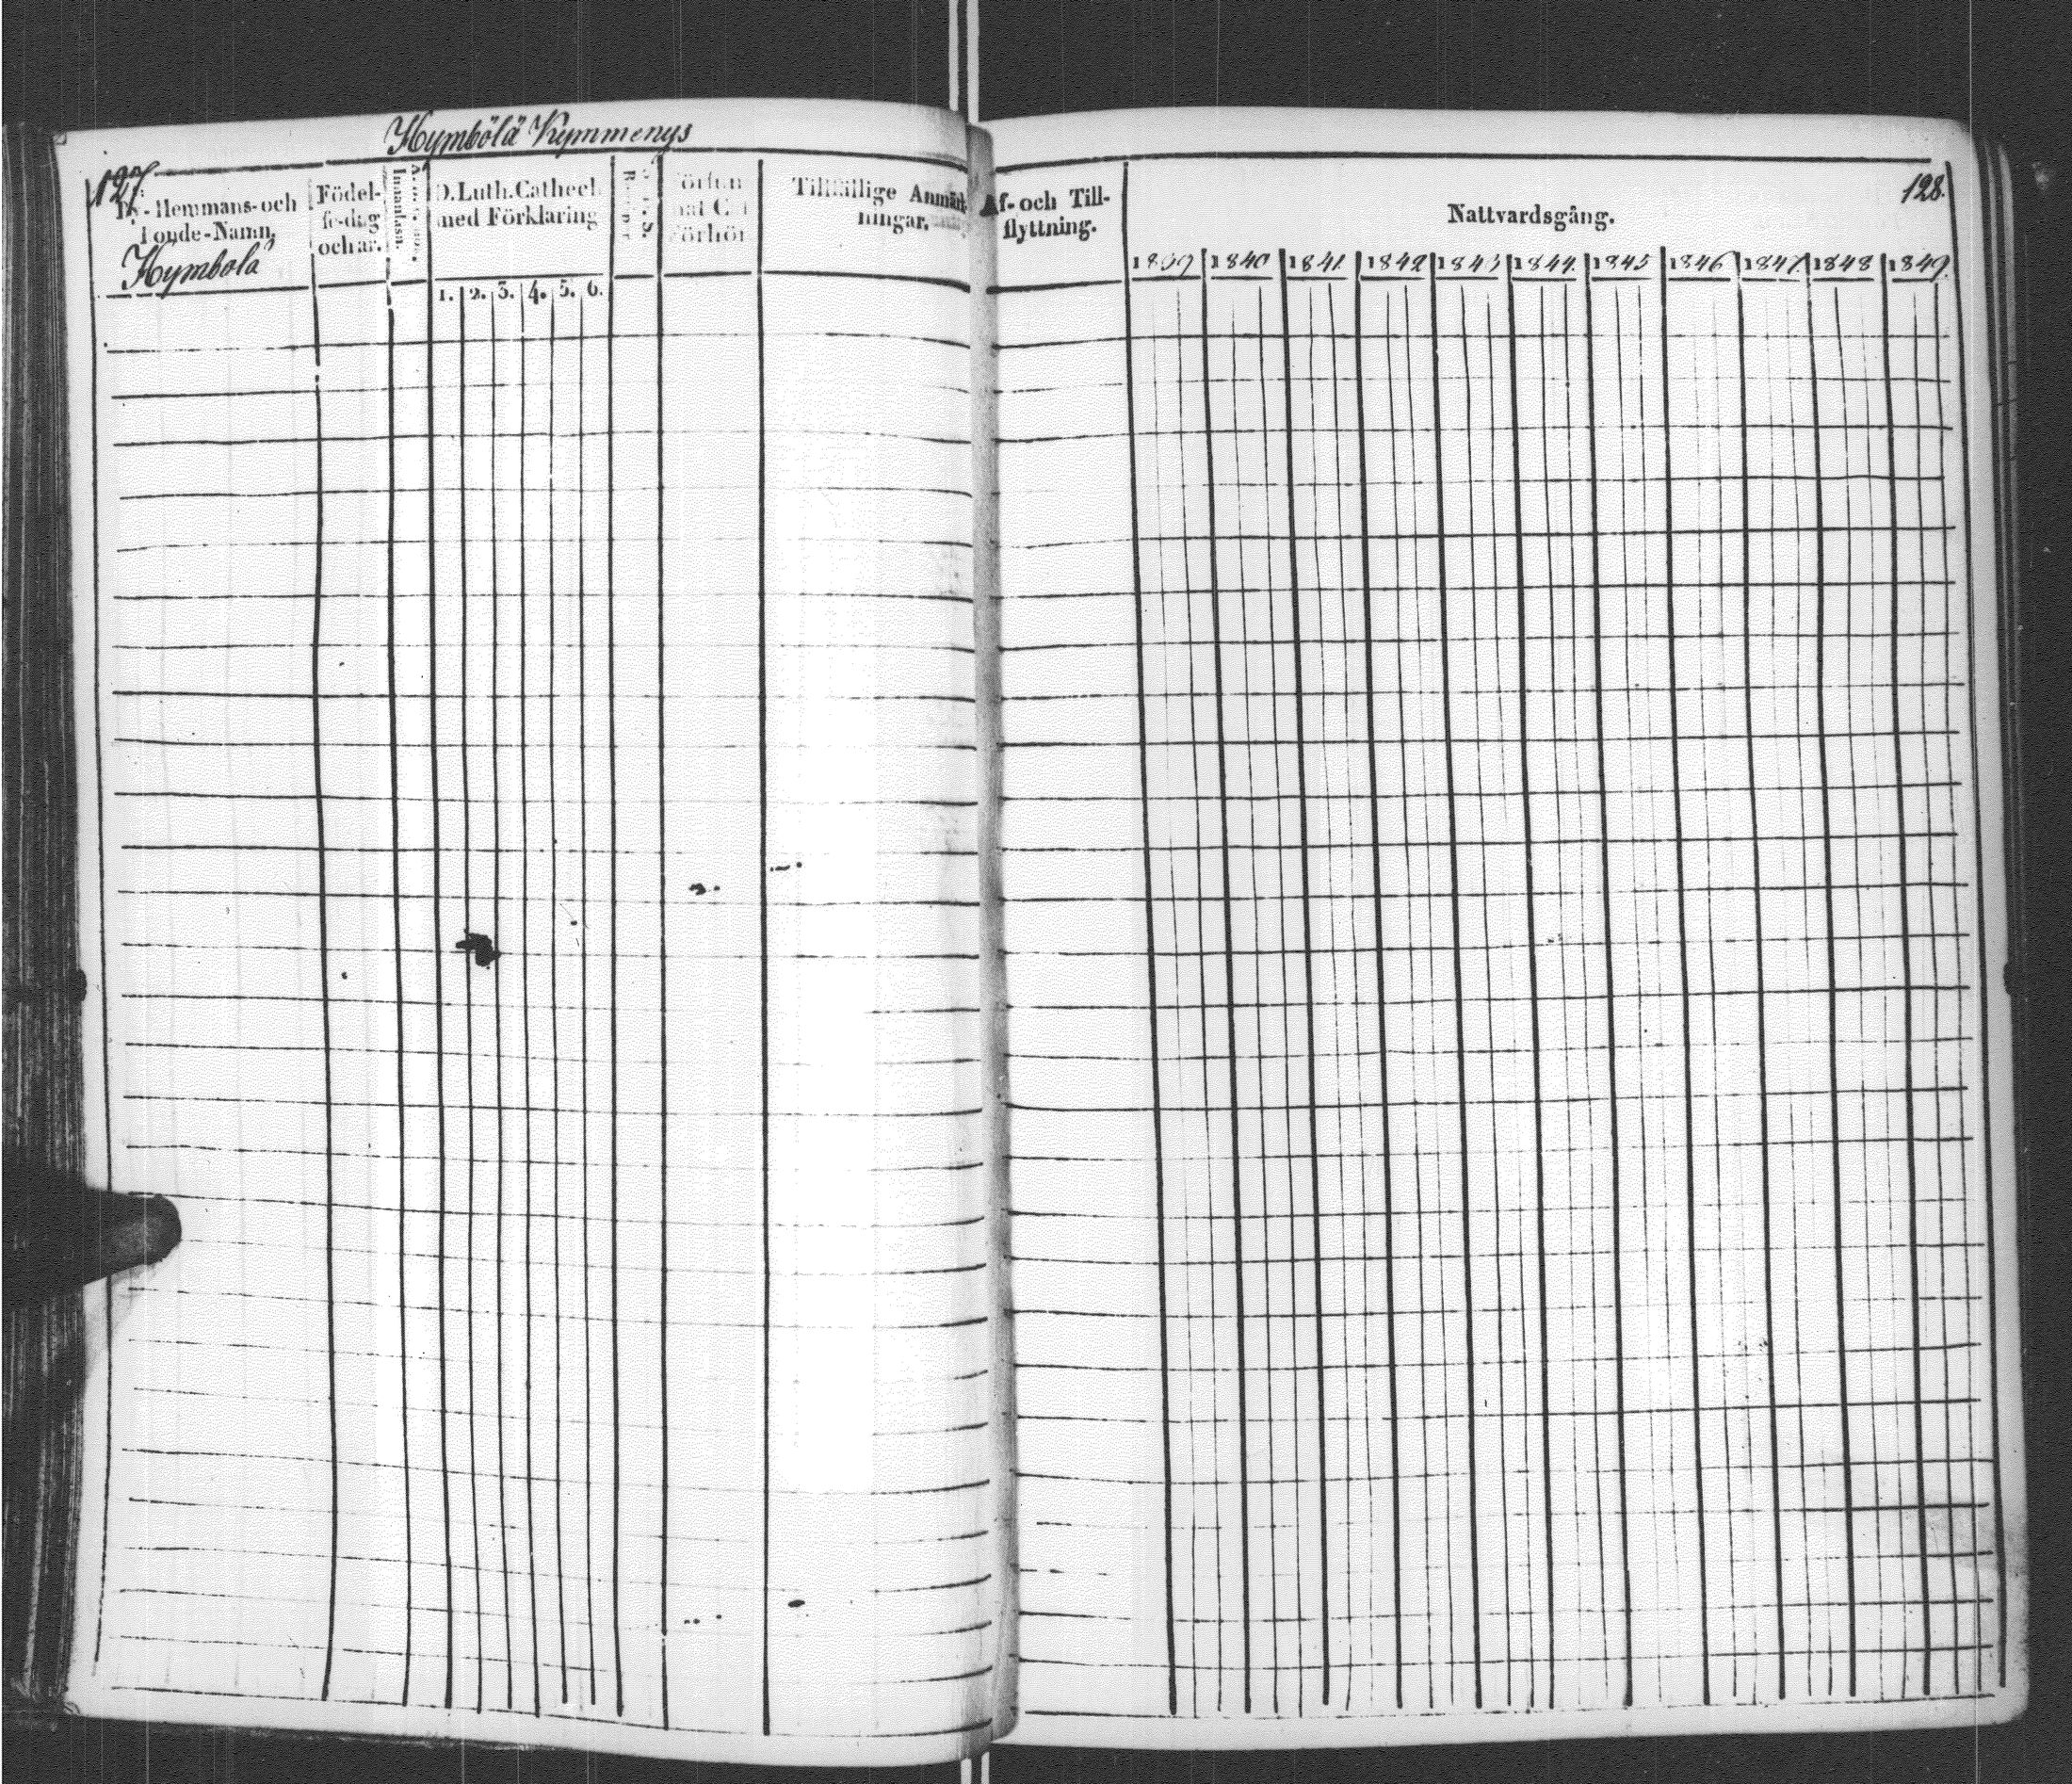 Hymbölä Kymmenys
127.
By-Hemmans-och
Torde-Namn.
Hymbölä
Födel-
se-dag
och år.
Innanläsn.
D. Luth. Cathech.
med Förklaring
1. 2. 3. 4. 5. 6.
Tillfällige Anmärk-
ningar.
Af- och Till-
flyttning.
128.
Nattvardsgång.
1839 1840 1841. 1842 1843 1844. 1845 1846 1847. 1848 1849.